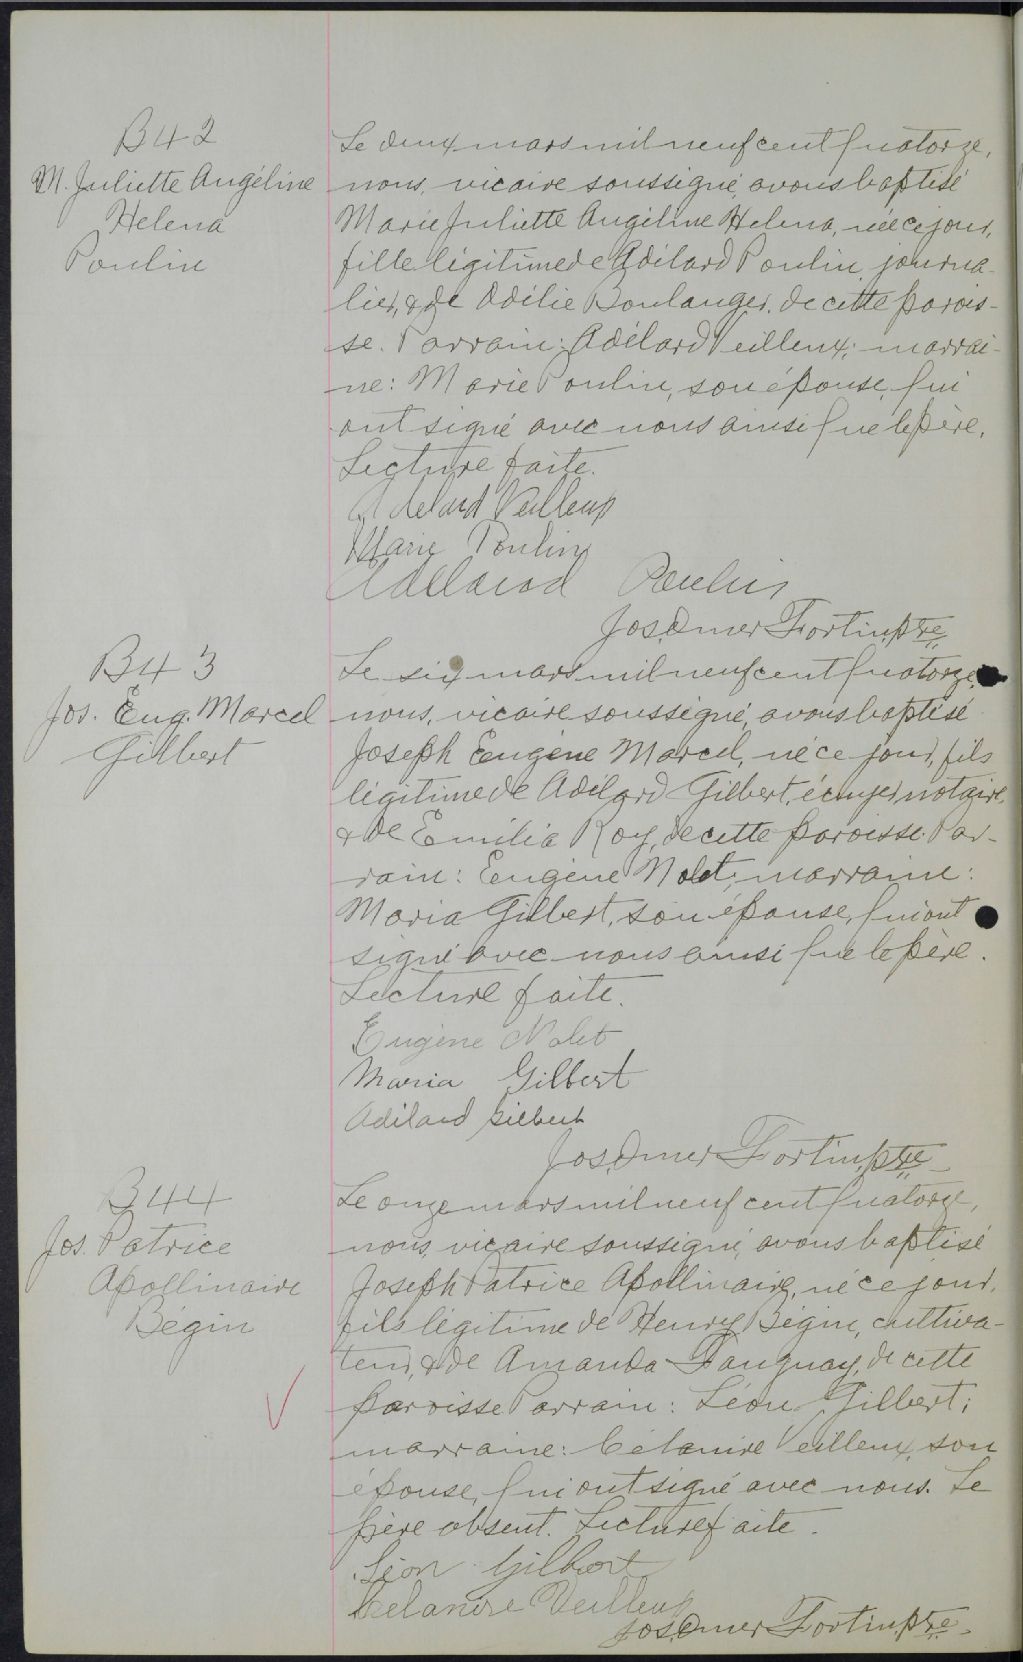 B 42
M. Juliette Angéline
Helena
Poulin
Le deux mars mil neuf cent quatorze,
nous, vicaire soussigné, avons baptisé
Marie Juliette Angéline Helena, née ce jour,
fille légitime de Adélard Poulin, journa-
lier, & de Odélie Boulanger, de cette parois-
se. Parrain: Adélard Veilleux; marrai-
ne: Marie Poulin, son épouse, qui
ont signé avec nous ainsi que le père.
Lecture faite.
Adelard Veilleux
Marie Poulin
Adelarod Poulin
Jos. Omer Fortin, ptre
B 43
Jos. Eug. Marcel
Gilbert
Le six mars mil neuf cent quatorze,
nous, vicaire soussigné, avons baptisé
Joseph Eugène Marcel, né ce jour, fils
légitime de Adélard Gilbert, écuyer, notaire,
& de Emilia Roy, de cette paroisse. Par-
rain: Eugène Nolet; marraine:
Maria Gilbert, son épouse, qui ont
signé avec nous ainsi que le père.
Lecture faite.
Eugène Nolet
Maria Gilbert
Adélard Gilbert
Jos. Omer Fortin, ptre
B 44
Jos. Patrice
Apollinaire
Bégin
Le onze mars mil neuf cent quatorze,
nous, vicaire soussigné, avons baptisé
Joseph Patrice Apollinaire, né ce jour,
fils légitime de Henry Bégin, cultiva-
teur, & de Amanda Tanguay, de cette
paroisse Parrain: Léon Gilbert;
marraine: Célanire Veilleux, son
épouse, qui ont signé avec nous. Le
père absent. Lecture faite.
Léon Gilbert
Celanire Veilleux
Jos. Omer Fortin, ptre.